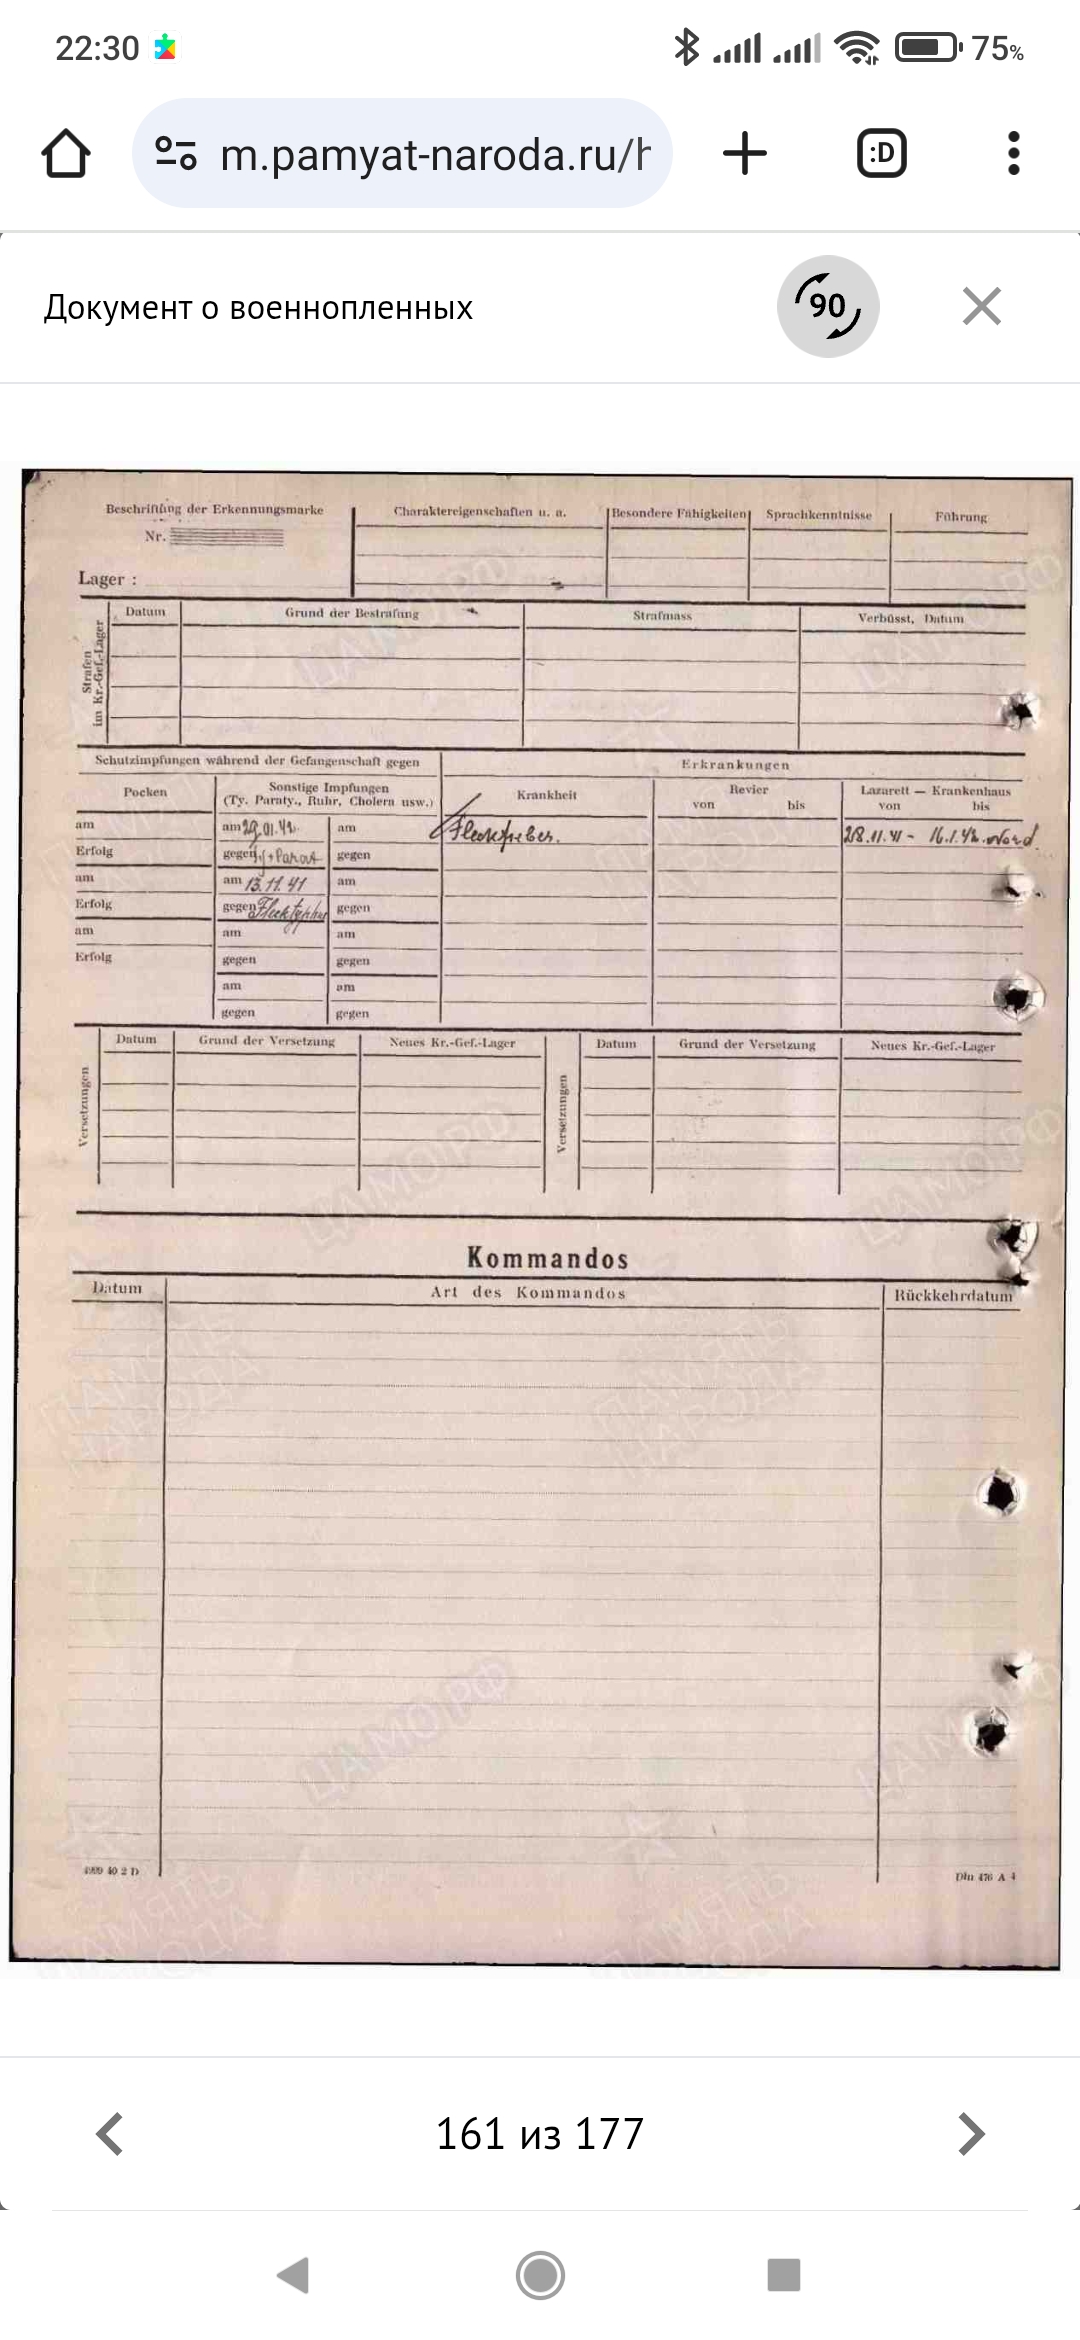 22:30
75%
m.pamyat-naroda.ru/h
:D
Документ о военнопленных
90
Beschriftung der Erkennungsmarke
Nr.
Lager :
Charaktereigenschaften u. a.
Besondere Fähigkeiten
Sprachkenntnisse
Führung
Strafen im Kr.-Gef.-Lager
Datum
Grund der Bestrafung
Strafmass
Verbüsst, Datum
Schutzimpfungen während der Gefangenschaft gegen
Erkrankungen
Pocken
Sonstige Impfungen
(Ty. Paraty., Ruhr, Cholera usw.)
Krankheit
Revier
von bis
Lazarett — Krankenhaus
von bis
am
am 29.01.42. am
Fleckfieber.
28.11.41 - 16.1.42. Nord.
Erfolg
gegen gegen
am
am 13.11.41 am
Erfolg
gegen Flecktyphus gegen
am
am am
Erfolg
gegen gegen
am am
gegen gegen
Versetzungen
Datum
Grund der Versetzung
Neues Kr.-Gef.-Lager
Versetzungen
Datum
Grund der Versetzung
Neues Kr.-Gef.-Lager
Kommandos
Datum
Art des Kommandos
Rückkehrdatum
Din 476 A 4
ЦАМО РФ
ПАМЯТЬ
НАРОДА
161 из 177